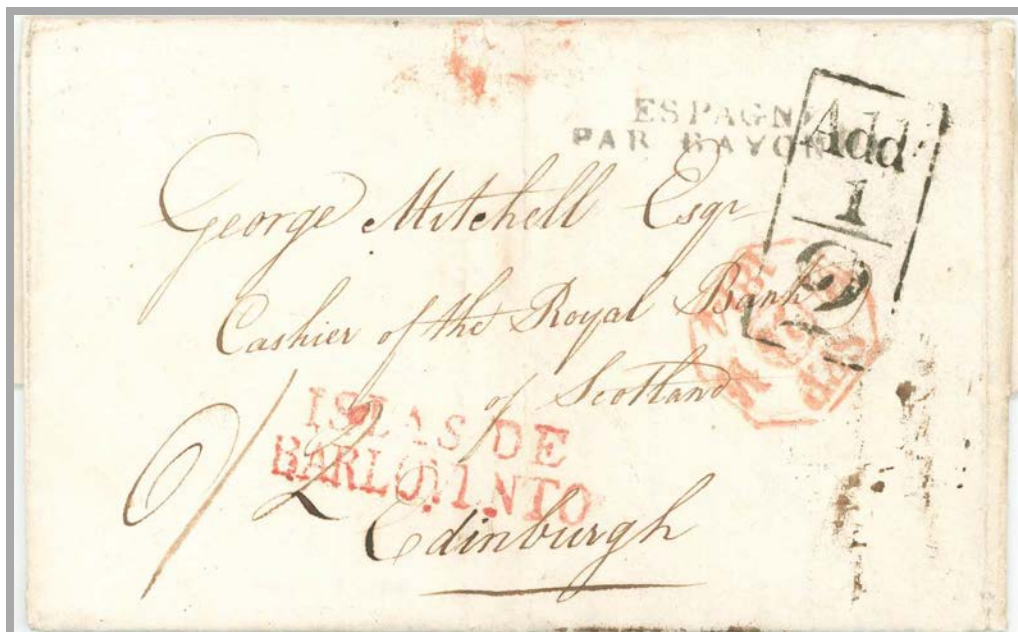 ESPAGN
PAR BAYON
Add
1
2
George Mitchell Esqr
Cashier of the Royal Bank
of Scotland
ISLAS DE
BARLOVINTO
Edinburgh